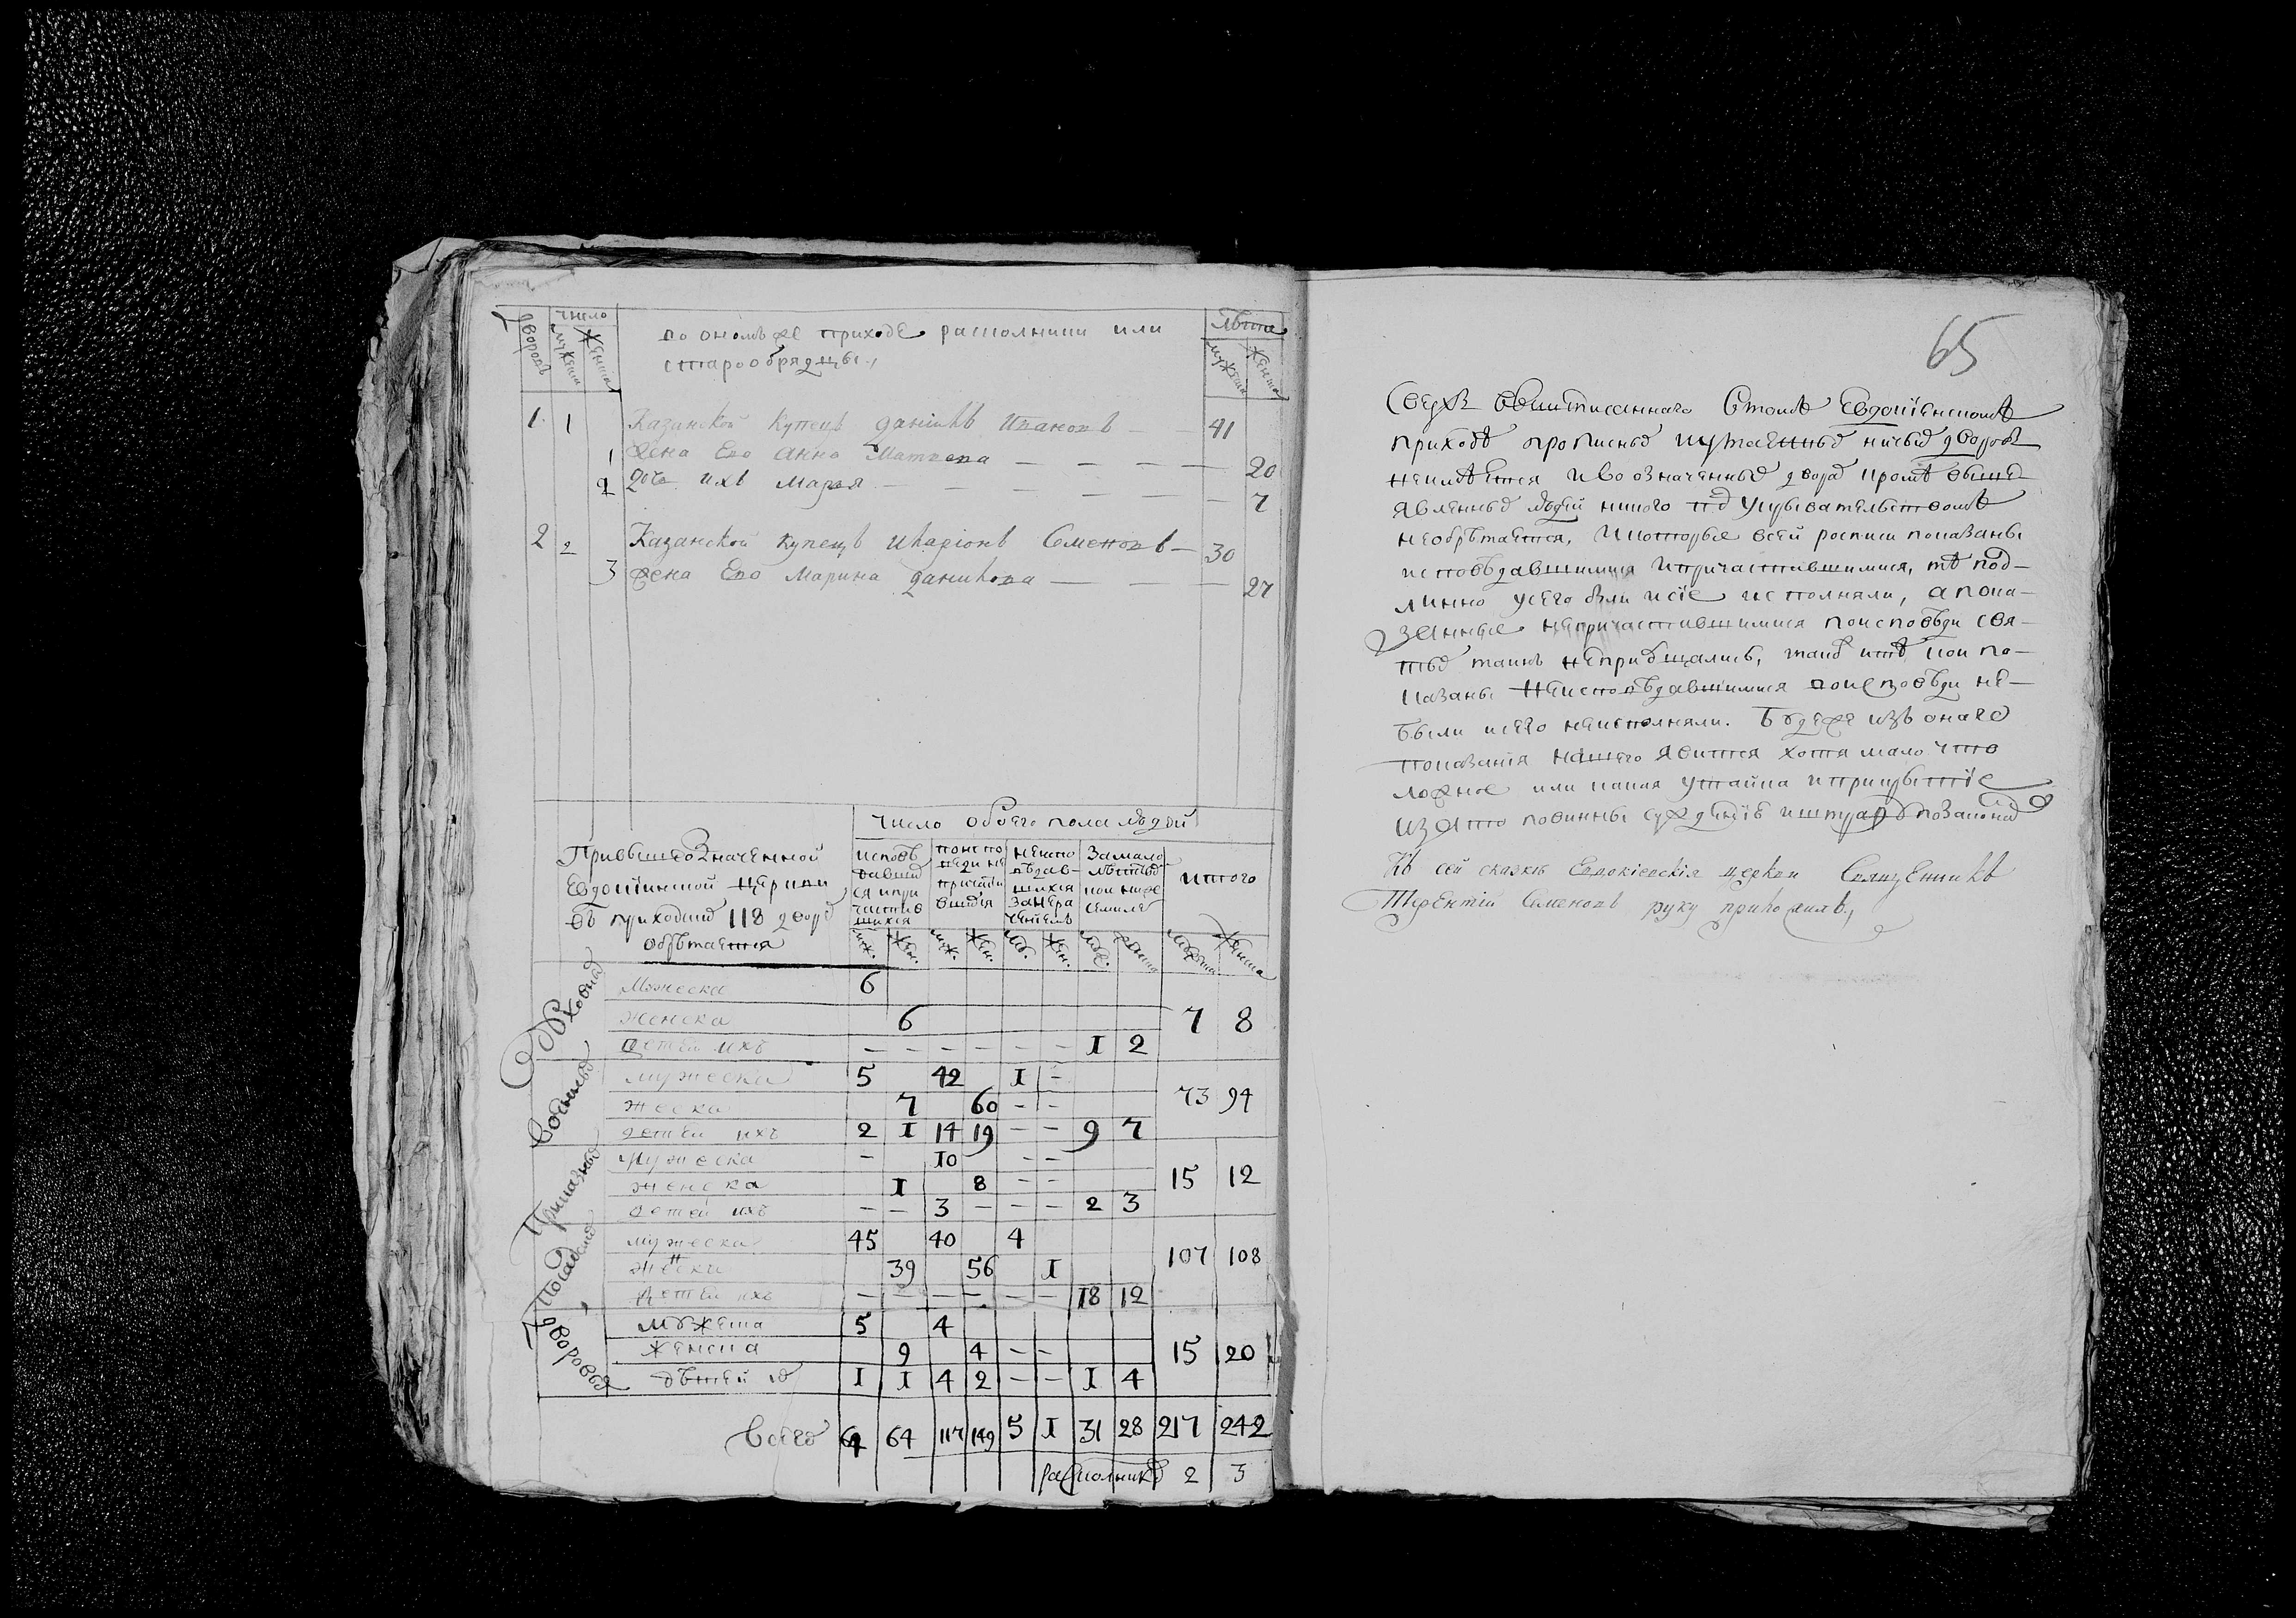 дворовъ
число
мужеска
женска
во ономъ же приходе раскольники или
старообрядцы
лѣта
мужеска
женска
1 1 Казанской купецъ данилъ Иванов 41
1 Жена Ево Анна Маткева 20
2 дочь ихъ Марья 7
2 2 Казанской купецъ Иларионъ Семеновъ 30
3 Жена Ево Марина данилова 27
число обоего пола людей
При вышеозначенной
Евдокиинской церкви
въ приходѣ 118 двор
обрѣтается
исповѣ
давши
ся и при
частив
шихся
по испо
веди не
причасти
вшихся
неиспо
вѣдав
шихся
за нера
чениемъ
За мало
лѣтст
итого
муж. жен. муж. жен. муж. жен. муж. женска мужеска женска
Духовных
Мужеска 6
Женска 6 7 8
детей ихъ – – – – – – I 2
Военных
мужеска 5 42 I –
женска 7 60 – – 73 94
детей ихъ 2 I 14 19 – – 9 7
Приказных
мужеска – 10 – –
женска I 8 – – 15 12
детей ихъ – – 3 – – – 2 3
Посадских
мужеска 45 40 4
женска 39 56 I 107 108
детей ихъ – – – – – – 18 12
дворовых
мужеска 5 4
женска 9 4 – – 15 20
дѣтей их I I 4 2 – – I 4
Всего 64 64 117 149 5 I 31 28 217 242
раскольников 2 3
65
Сверхъ вышписаннаго в томъ Евдокиинскомъ
приходѣ прописных и утаенных ничьих дворовъ
неимѣется и во означенных дворах кромѣ выше
явленных людей никого под укрывательством
необрѣтается, и которые в сей росписи показаны
исповѣдавшимися и причастившимися, тѣ под-
линно у сего были и сіе исполняли, а пока-
занные непричастившимися по исповѣди свя-
тых таинъ неприобщались, такъ и тѣ кои по-
казаны неисповѣдавшимися во исповѣди не-
были и сего неисполняли. Будеже изъ онаго
показанія нашего явится хотя мало что
ложное или какая утайка и прикрытіе
из за то повинны суждению и штрафу по законам
Къ сей сказкѣ Евдокіевскія церкви Священникъ
Терентій Семеновъ руку приложилъ